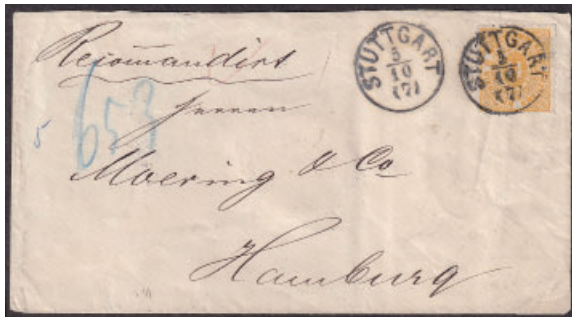 Rejomandirt
STUTTGART
5
10
(7)
STUTTGART
5
10
(7)
653
5
Herren
Moering & Co
Hamburg